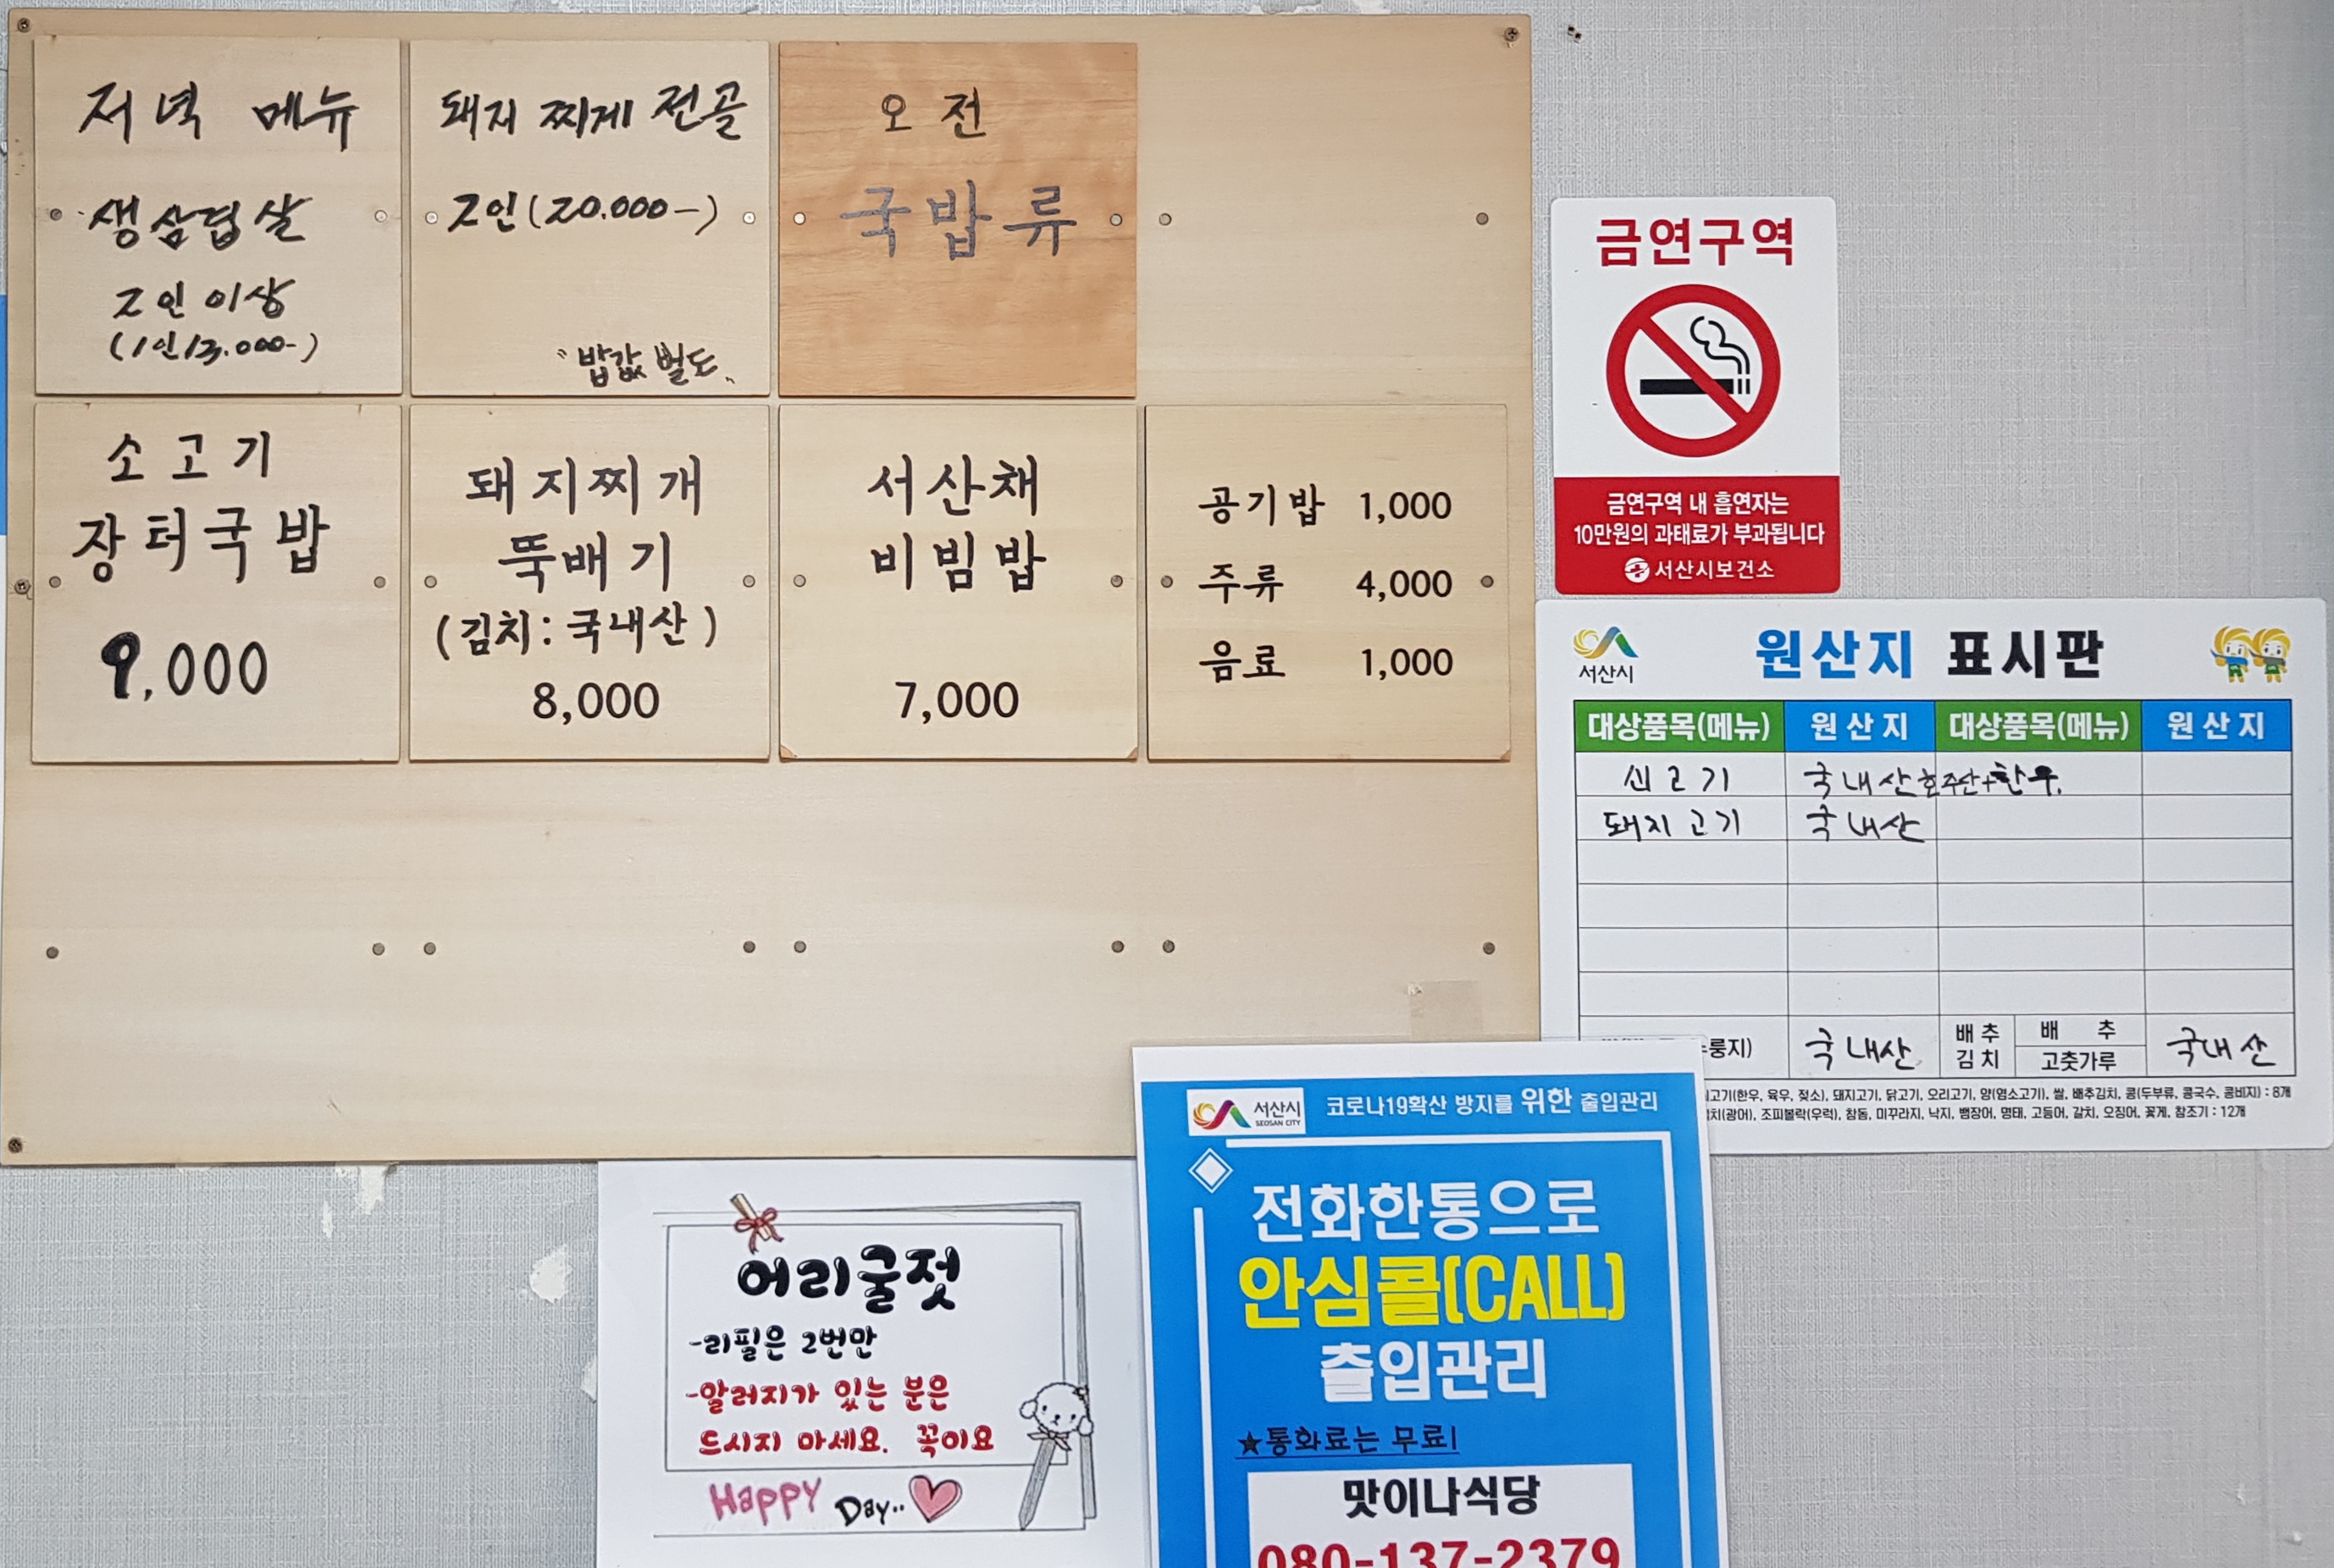 저녁 메뉴
생삼겹살
2인 이상
(1인 13.000-)
돼지 찌게 전골
2인(20.000-)
"밥값 별도"
오전
국밥류
소고기
장터국밥
9,000
돼지찌개
뚝배기
(김치: 국내산)
8,000
서산채
비빔밥
7,000
공기밥 1,000
주류 4,000
음료 1,000
금연구역
금연구역 내 흡연자는
10만원의 과태료가 부과됩니다
서산시보건소
서산시
원산지 표시판
대상품목(메뉴) 원산지 대상품목(메뉴) 원산지
고기 국내산 호주산+한우.
돼지고기 국내산
룽지) 국내산 배추김치 배추 고춧가루 국내산
고기(한우, 육우, 젖소), 돼지고기, 닭고기, 오리고기, 양(염소고기), 쌀, 배추김치, 콩(두부류, 콩국수, 콩비지) : 8개
치(광어), 조피볼락(우럭), 참돔, 미꾸라지, 낙지, 뱀장어, 명태, 고등어, 갈치, 오징어, 꽃게, 참조기 : 12개
어리굴젓
-리필은 2번만
-알러지가 있는 분은
드시지 마세요. 꼭이요
Happy Day..
서산시
SEOSAN CITY
코로나19확산 방지를 위한 출입관리
전화한통으로
안심콜(CALL)
출입관리
★통화료는 무료!
맛이나식당
080-137-2379